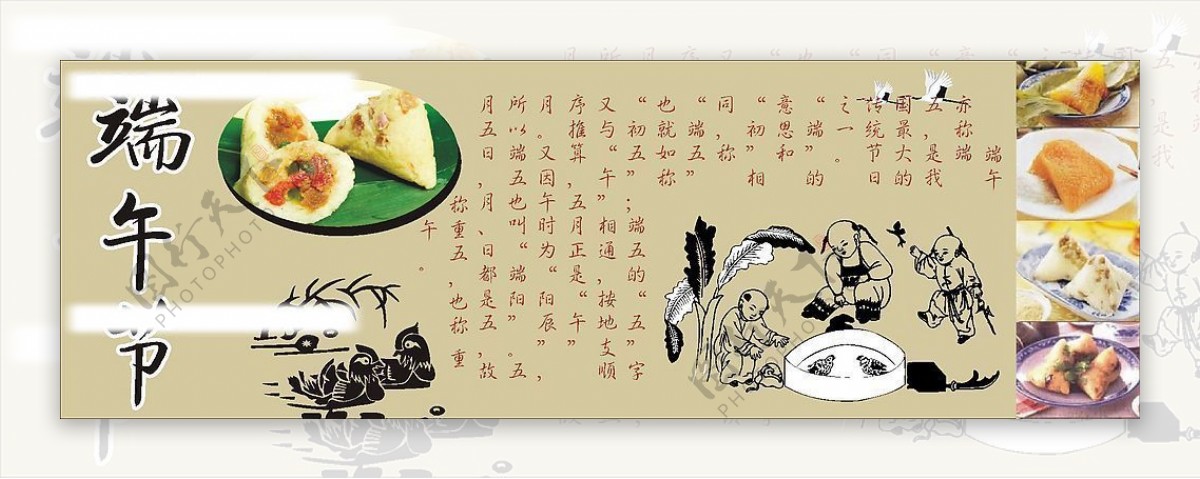 端午节
端午
亦称端
五,是我
国最大的
传统节日
之一。
“端”的
意思和
“初”相
同,称
“端五”
也就如称
“初五”;端五的“五”字
又与“午”相通,按地支顺
序推算,五月正是“午”
月。又因午时为“阳辰”,
所以端五也叫“端阳”。五
月五日,月、日都是五,故
称重五,也称重
午。